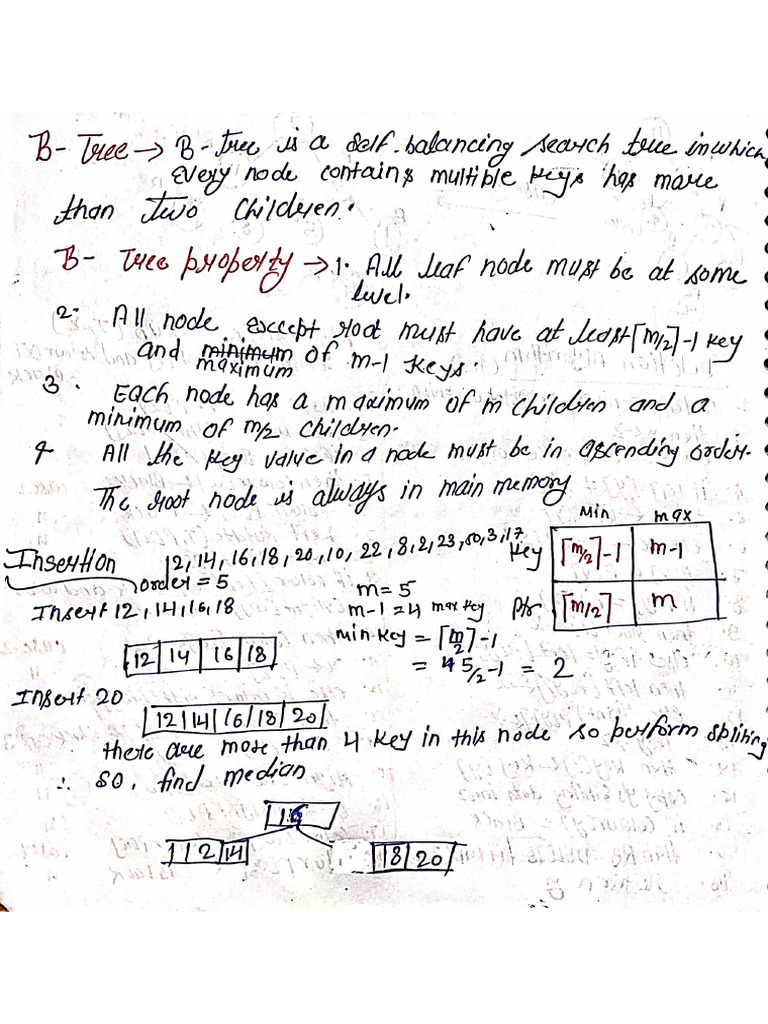 B- Tree → B-tree is a self-balancing search tree in which
every node contains multiple keys has more
than two children.
B- Tree property → 1. All leaf node must be at some
level.
2- All node except root must have at least ⌈m/2⌉-1 key
and minimum maximum of m-1 keys.
3. Each node has a maximum of m children and a
minimum of m/2 children.
4 All the key value in a node must be in ascending order.
The root node is always in main memory
Min max
Key ⌈m/2⌉-1 m-1
Ptr ⌈m/2⌉ m
Insertion 12, 14, 16, 18, 20, 10, 22, 8, 2, 23, 50, 3, 17
order = 5
m = 5
Insert 12, 14, 16, 18
m-1 = 4 max key
min-key = ⌈m/2⌉-1
12 14 16 18
= 5/2-1 = 2
Insert 20
12 14 16 18 20
there are more than 4 key in this node so perform spliting
∴ so, find median
16
12 14
18 20